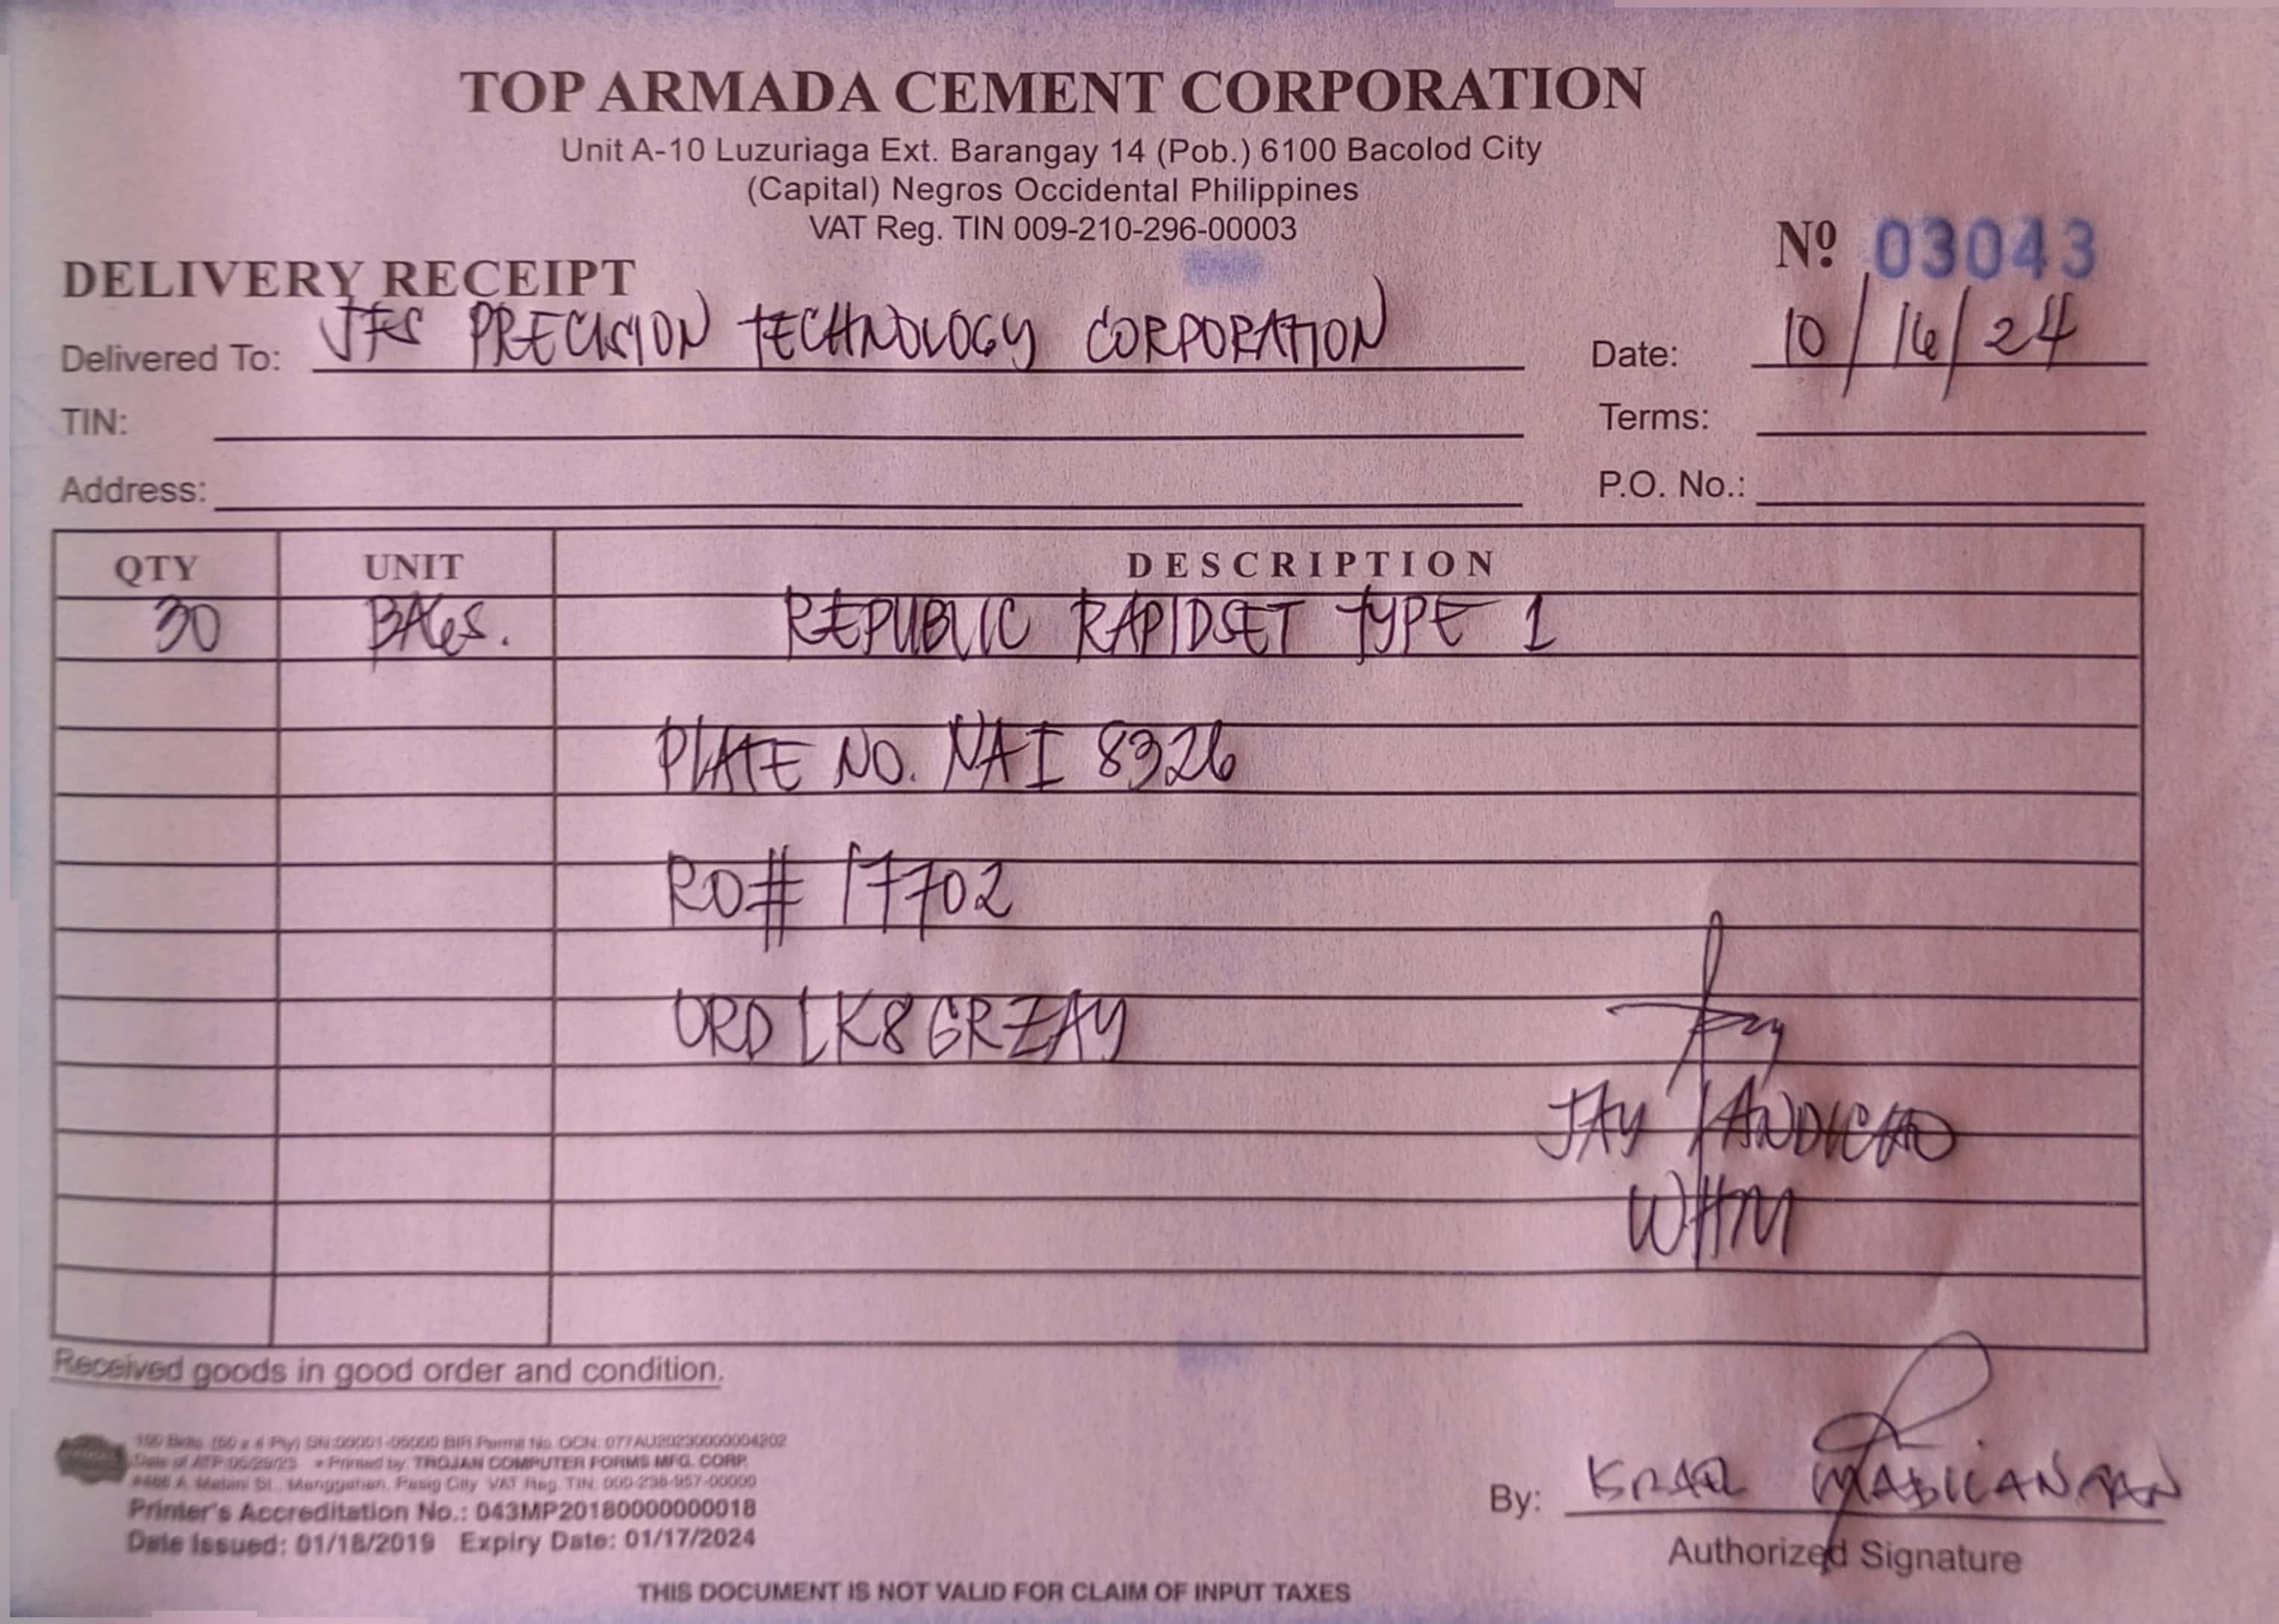 TOP ARMADA CEMENT CORPORATION
Unit A-10 Luzuriaga Ext. Barangay 14 (Pob.) 6100 Bacolod City
(Capital) Negros Occidental Philippines
VAT Reg. TIN 009-210-296-00003
Nº 03043
DELIVERY RECEIPT
Delivered To: JFS PRECISION TECHNOLOGY CORPORATION Date: 10/16/24
TIN: Terms:
Address: P.O. No.:
QTY UNIT DESCRIPTION
30 BAGS. REPUBLIC RAPIDSET TYPE 1
PLATE NO. NAI 8326
RO# 17702
ORD LK8GRZAY
JAY
WHM
Received goods in good order and condition.
100 Bklts. (50 x 4 Ply) SN:00001-05000 BIR Permit No. OCN: 077AU20230000004202
Date of ATP: * Printed by: TROJAN COMPUTER FORMS MFG. CORP.
A. Mabini St., Manggahan, Pasig City VAT Reg. TIN: 000-238-957-00000
Printer's Accreditation No.: 043MP20180000000018
Date Issued: 01/18/2019 Expiry Date: 01/17/2024
By:
Authorized Signature
THIS DOCUMENT IS NOT VALID FOR CLAIM OF INPUT TAXES